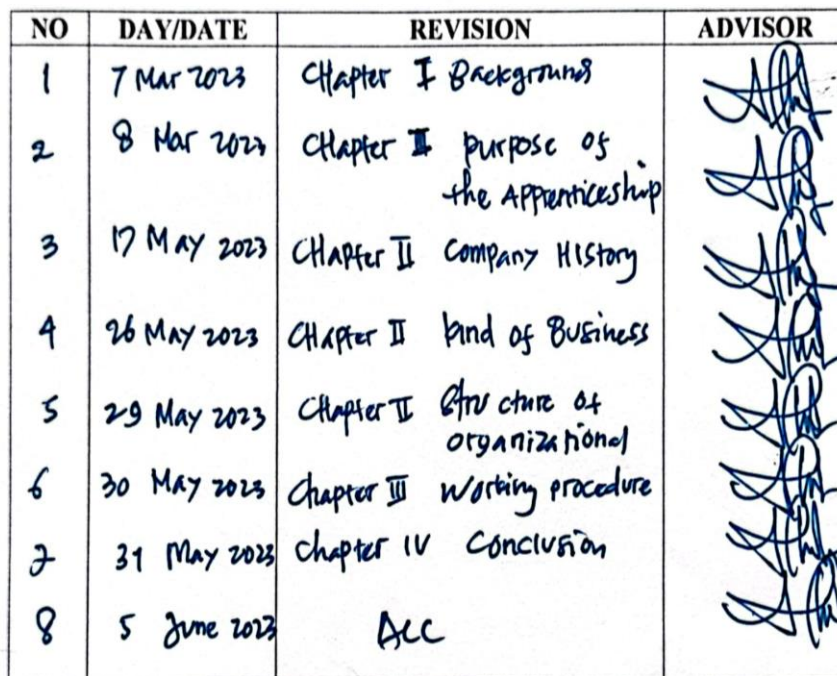 NO DAY/DATE REVISION ADVISOR
1 7 Mar 2023 CHapter I Background
2 8 Mar 2023 CHapter I purpose of
the Apprenticeship
3 17 May 2023 CHapter II Company History
4 26 May 2023 CHapter II kind of Business
5 29 May 2023 CHapter II Structure of
organizational
6 30 May 2023 Chapter III Working procedure
7 31 May 2023 Chapter IV Conclusion
8 5 June 2023 ACC